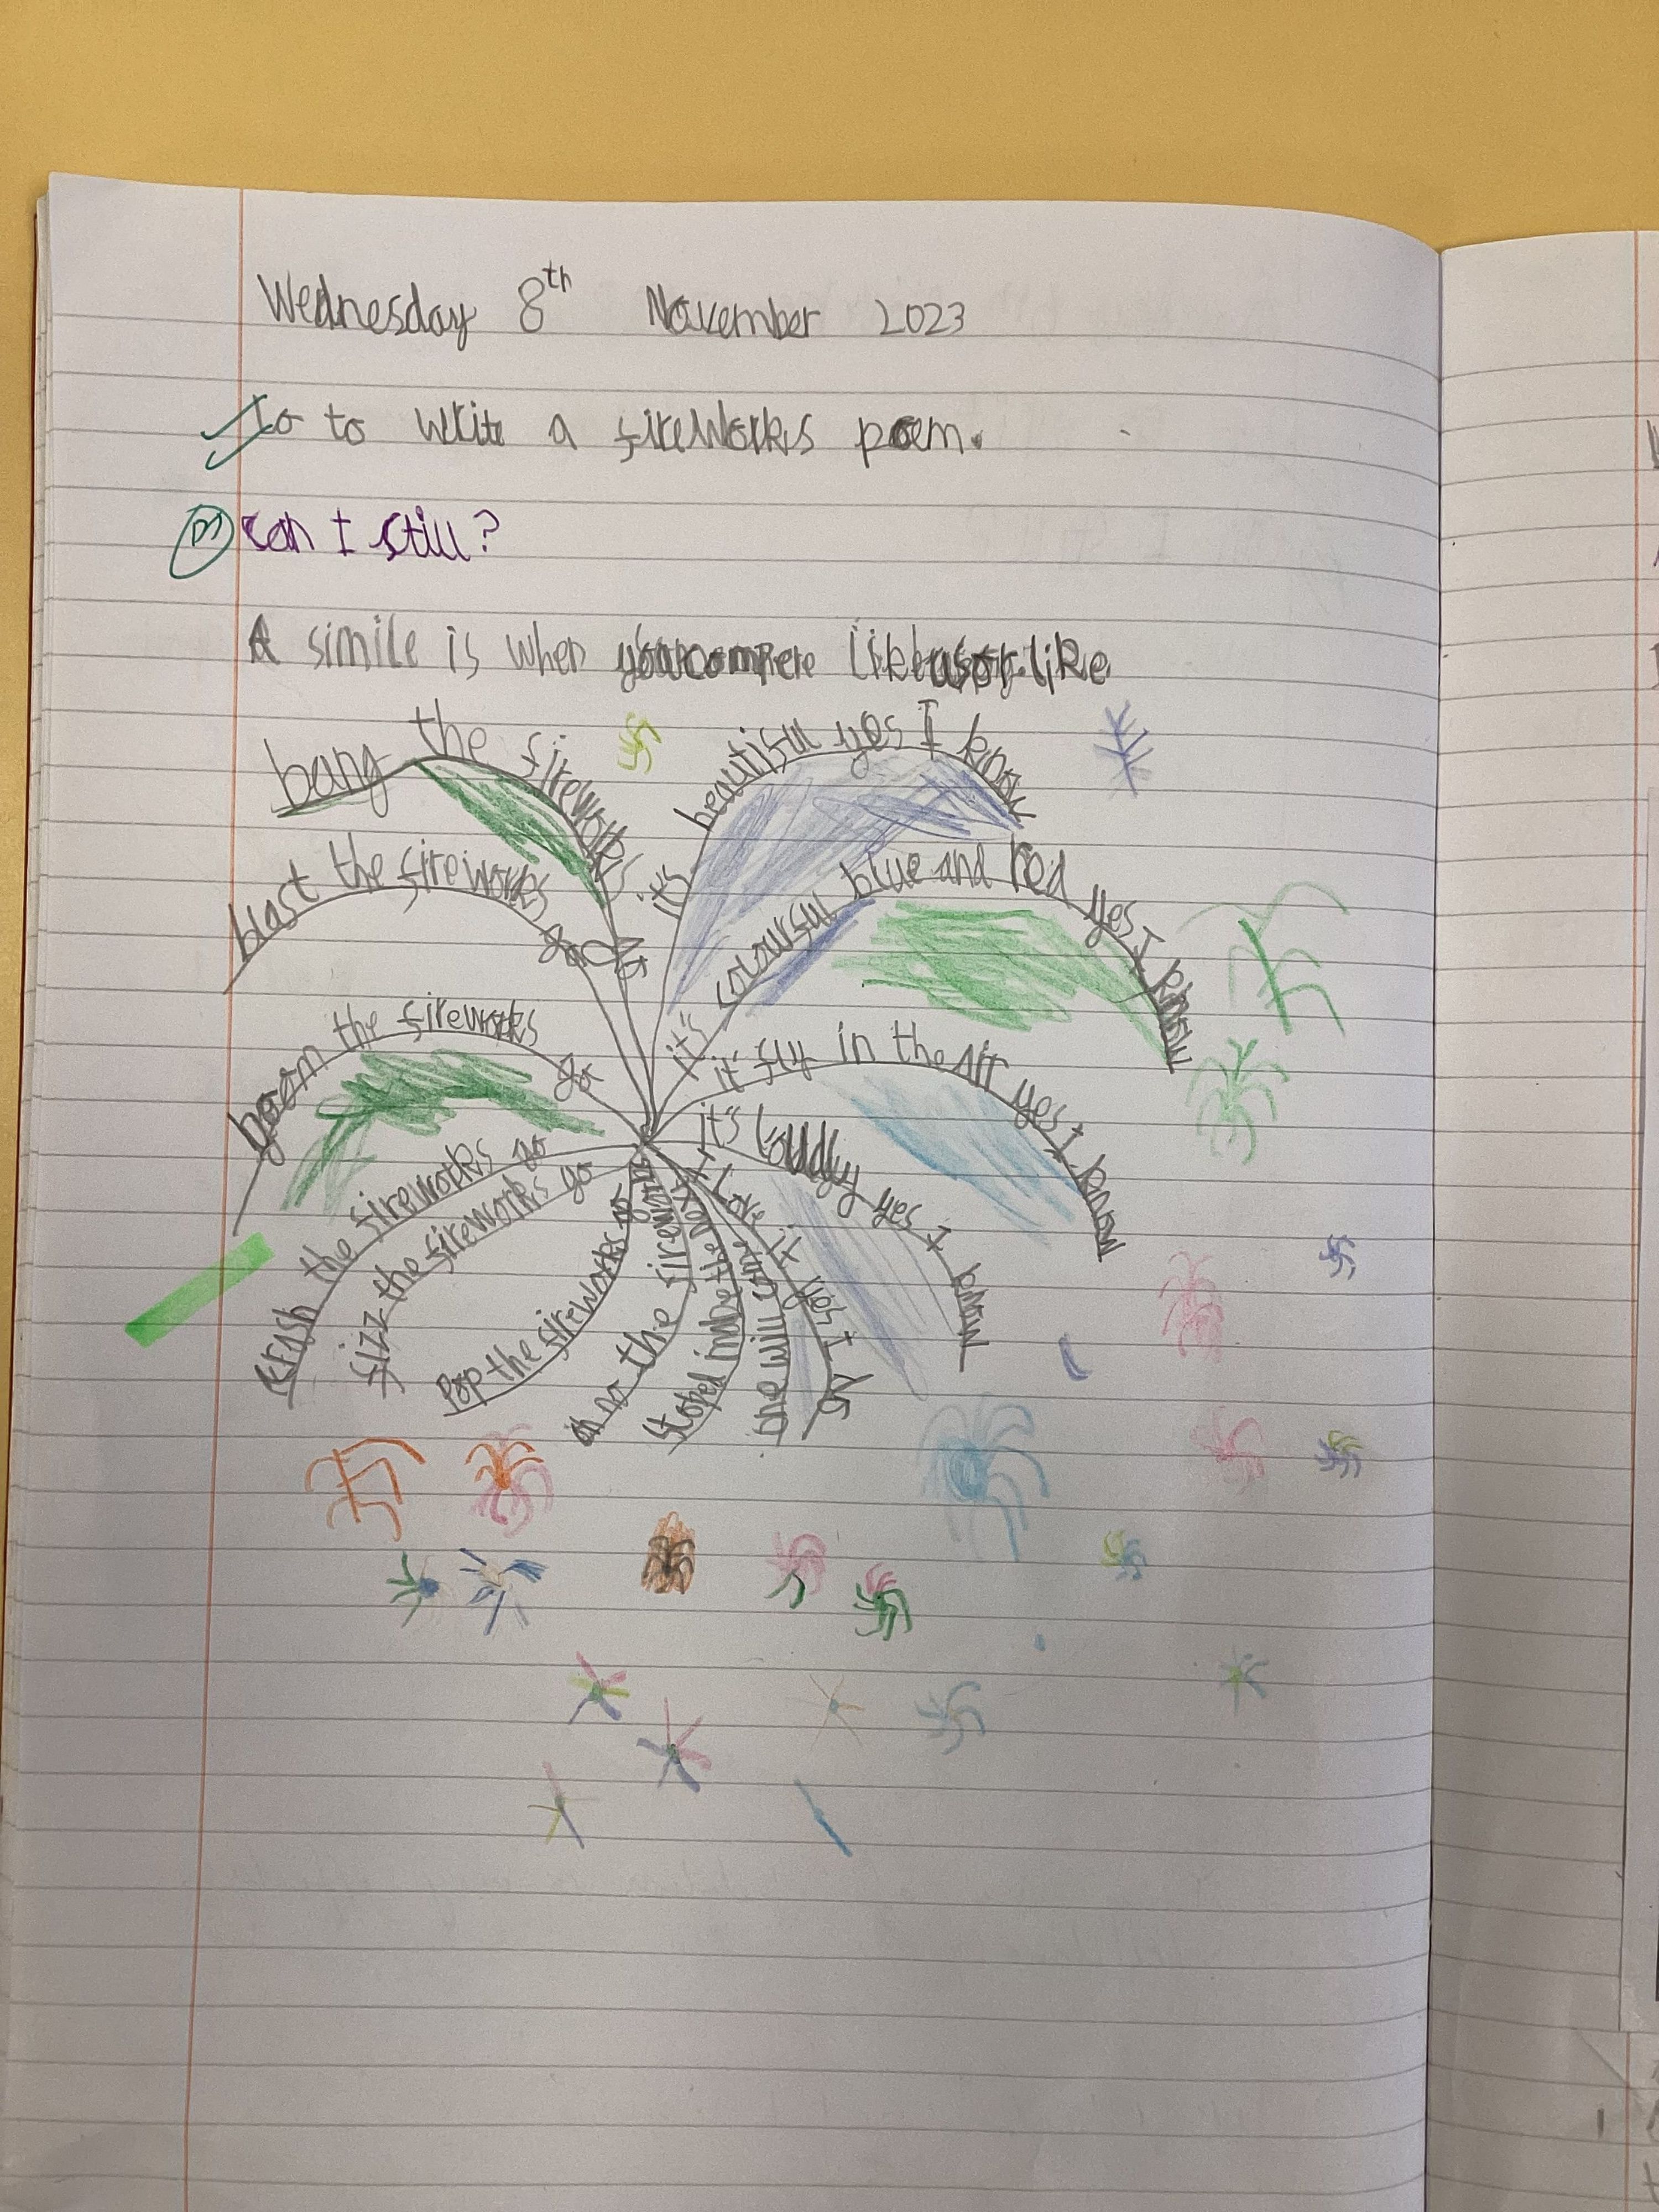 Wednesday 8th November 2023
to write a fireworks poem.
Can I still?
A simile is when you compere like as or like
bang the fireworks go
blast the fireworks go
boom the fireworks go
crash the fireworks go
fizz the fireworks go
Pop the fireworks go
o no the fireworks
Stoped mabe the next
one will come
I love it yes I
it's loudly yes I know
it fly in the air yes I know
it's colourful blue and Red yes I know
it's beautiful yes I know